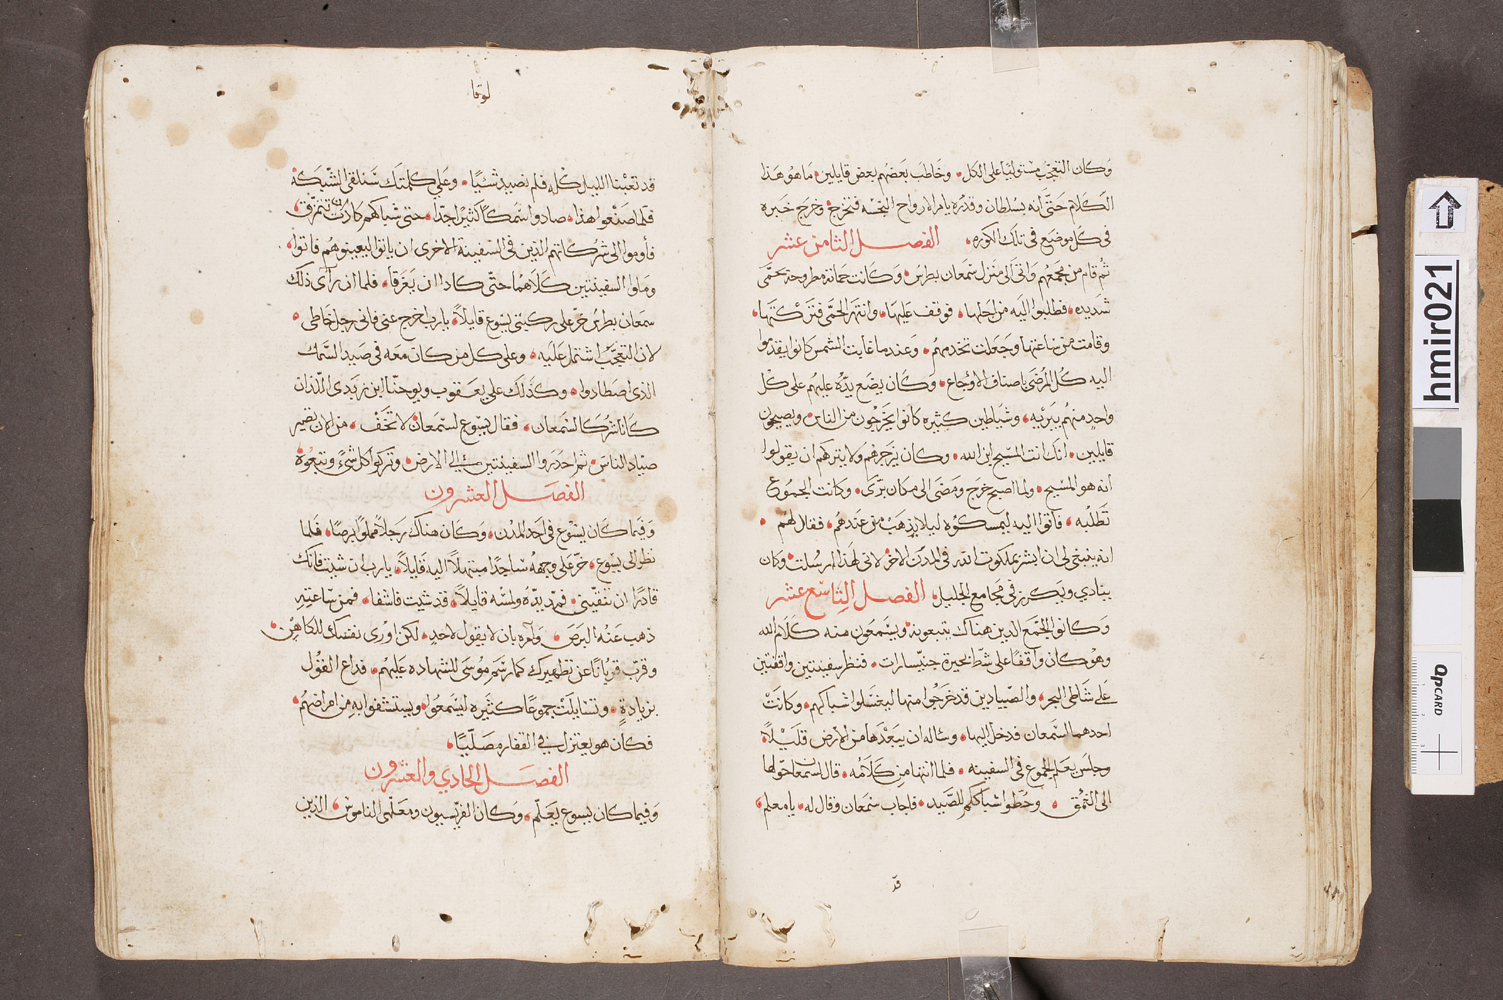 وكان التعجب مستوليا على الكل وخاطب بعضهم بعض قايلين ما هو هذا
الكلام حتى انه بسلطان وقدرة يامر الارواح النجسه فتخرج وخرج خبره
فى كل موضع فى تلك الكوره الفصل الثامن عشر
ثم قام من مجمعهم واتى الى منزل سمعان بطرس وكانت حماته مطروحة بحمى
شديده فطلبوا اليه من اجلها فوقف عليها وانتهر الحمى فتركتها
وقامت من ساعتها وجعلت تخدمهم وعندما غابت الشمس كانوا يقدموا
اليه كل المرضى باصناف الاوجاع وكان يضع يده عليهم على كل
واحد منهم يبريه وشياطين كثيره كانوا يخرجون من الناس ويصيحون
قايلين انك انت المسيح ابن الله وكان يزجرهم ولا يتركهم ان يقولوا
انه هو المسيح ولما اصبح خرج ومضى الى مكان برى وكانت الجموع
تطلبه فاتوا اليه ليمسكوه ليلا يذهب من عندهم فقال لهم
انه ينبغى لى ان ابشر بملكوت الله فى المدن الاخر لانى لهذا ارسلت وكان
ينادي ويكرز فى مجامع الجليل الفصل التاسع عشر
وكانوا الجمع الدين هناك يتبعونه ويسمعون منه كلام الله
وهو كان واقفا على شط بحيرة جنيسارات فنظر سفينتين واقفتين
على شاطى البحر والصيادين قد خرجوا منها ليغسلوا شباكهم وكانت
احدهما لسمعان فدخل اليها وساله ان يبعدها من الارض قليلا
وجلس يعلم الجموع فى السفينه فلما انتها من كلامه قال لسمعان حولها
الى العمق وحطوا شباككم للصيد فاجاب سمعان وقال له يا معلم
قد
لوقا
قد تعبنا الليل كله فلم نصيد شئيا وعلى كلمتك سنلقى الشبكة
فلما صنعوا هذا صادوا سمكا كثيرا جدا حتى شباكهم كادت تتمزق
فأوموا الى شركائهم الدين فى السفينة الاخرى ان ياتوا ليعينوهم فاتوا
وملوا السفينتين كلاهما حتى كادا ان يغرقا فلما ان راى ذلك
سمعان بطرس خر على ركبتى يسوع قايلا يا رب اخرج عنى فانى رجل خاطى
لان التعجب اشتمل عليه وعلى كل من كان معه فى صيد السمك
الذى اصطادوا وكذلك على يعقوب ويوحنا ابن زبدى اللذان
كانا شركا لسمعان فقال يسوع لسمعان لا تخف من الان تصير
صياد الناس ثم احدروا السفينتين الى الارض وتركوا كل شئ وتبعوه
الفصل العشرون
وفيما كان يسوع فى احد المدن وكان هناك رجلا مملوا برصا فلما
نظر الى يسوع خر على وجهه ساجدا مبتهلا اليه قايلا يا رب ان شيت فانك
قادرا ان تنقينى فمد يده ولمسه قايلا قد شيت فاشفا فمن ساعته
ذهب عنه البرص وامره بان لا يقول لاحد لكن اورى نفسك للكاهن
وقرب قربانا عن تطهيرك كما رسم موسى للشهاده عليهم فداع القول
بزيادة وتسايلت جموعا كثيره ليسمعوا ويستشفوا به من امراضهم
فكان هو يعتزل فى القفار مصليا
الفصل الحادي والعشرون
وفيما كان يسوع يعلم وكان الفريسيون ومعلمى الناموس الذين
hmir021
QPCARD